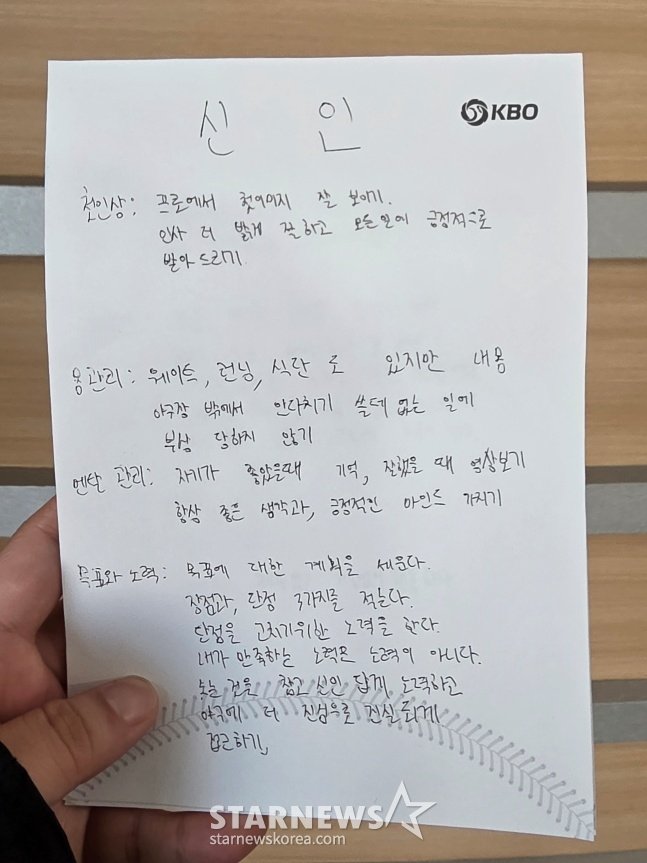 신 인
KBO
첫인상: 프로에서 첫이미지 잘 보이기.
인사 더 밝게 잘하고 모든일에 긍정적으로
받아 드리기
몸관리: 웨이트, 런닝, 식단 도 있지만 내용
야구장 밖에서 안다치기 쓸데 없는 일에
부상 당하지 않기
멘탈 관리: 자기가 좋았을때 기억, 잘했을 때 영상보기
항상 좋은 생각과, 긍정적인 마인드 가지기
목표와 노력: 목표에 대한 계획을 세운다.
장점과, 단점 3가지를 적는다.
단점을 고치기위한 노력을 한다.
내가 만족하는 노력은 노력이 아니다.
노는 것을 참고 신인 답게 노력하고
야구에 더 진심으로 진실되게
접근하기,
STARNEWS
starnewskorea.com